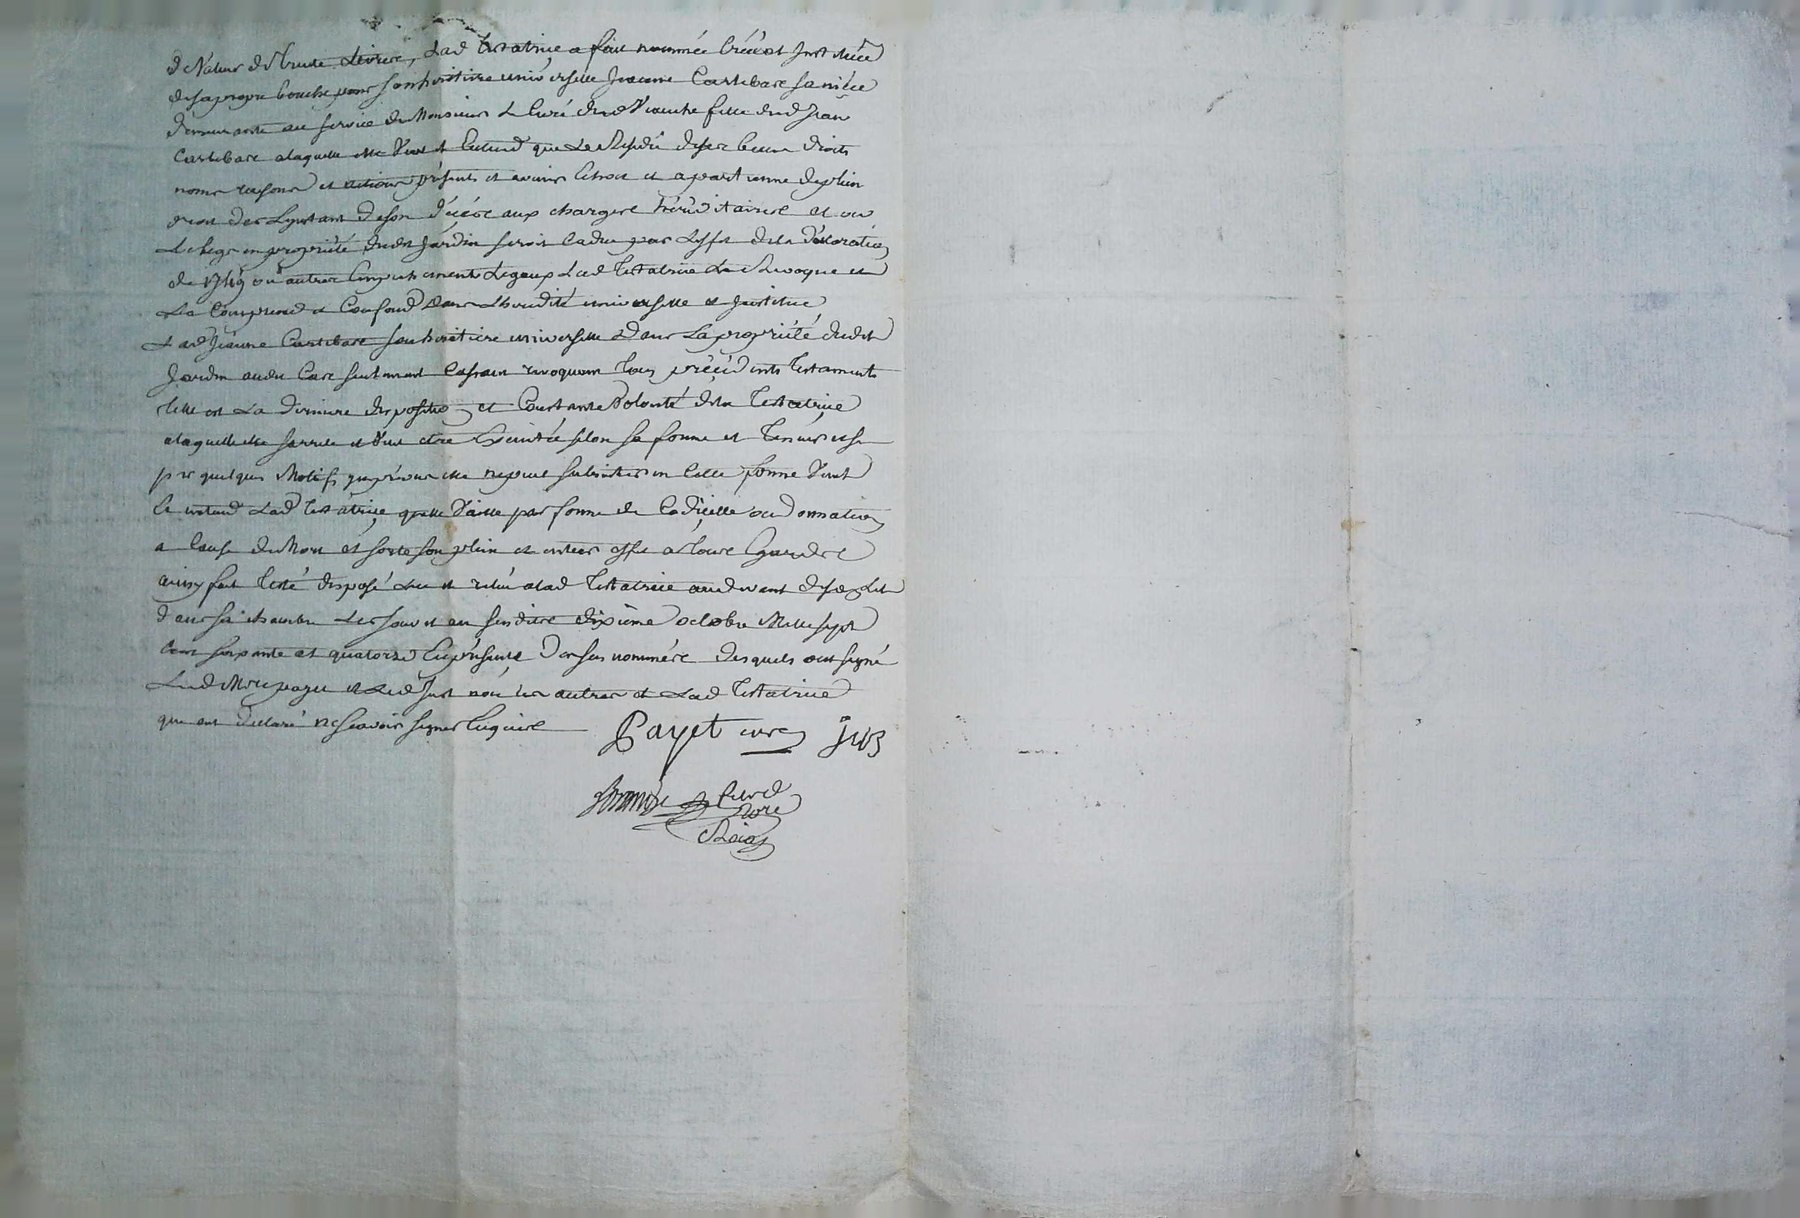 de valeur de trente livres, Lad testatrice a fait nommée Créé et Instituée
de sa propre bouche pour son heritiere universelle Jeanne Castebare sa niéce
demeurante au service de Monsieur Le Curé dud fille dud Jean
Castebare a laquelle elle veut et Entend que Le Residu de ses biens droits
noms raisons et actions présents et avenir Echoit et apartienne de plein
droit des Lynstant de son décéce aux charges héréditaires et ou
Le legs en propriété dudit Jardin seroit Caduc par Leffet de la déclaration
de 1749 ou autres Empechements Legaux Lad testatrice Le Revoque et
Le Comprend et Confond dans Lheredité universelle et Institue
Lad Jeanne Castebare son heritiere universelle Dans La propriété dudit
Jardin audit Cas seulement Cassant revoquant tous précédents testaments
telle est La derniere disposition et Constante Volonté de la testatrice
a laquelle elle et veut etre Executée selon sa forme et teneur et si
pr quelques Motifs elle ne peut subsister en Cette forme Veut
Et entend Lad testatrice quelle vaille par forme de Codicille ou donnation
a Cause de Mort et sorte son plein et entier effet a tous Egards
ainsy fait testé disposé Lu et relu a lad testatrice au devant de son Lit
dans sa chambre Les jour et an dixieme octobre Mille sept
Cent soixante et quatorze En présence Dessus nommés desquels ont signé
Led Mre payet et Led Just non les autres et Lad testatrice
qui ont declaré ne scavoir signer Enquis
Payet curé Just
nore